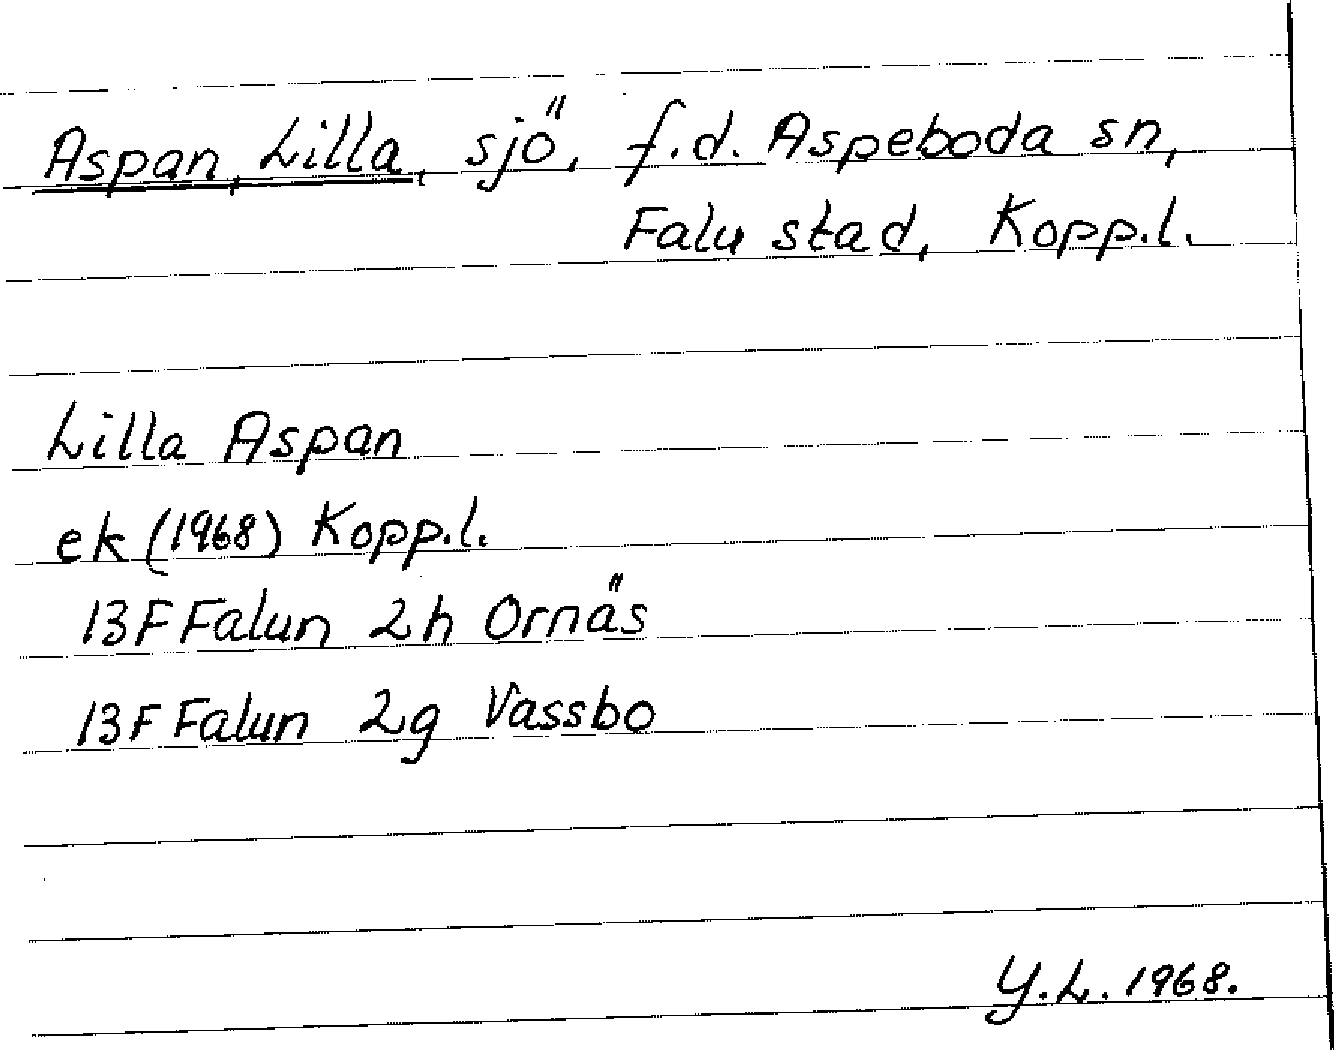 Aspan, Lilla, sjö, f.d. Aspeboda sn,
Falu stad, Kopp.l.
Lilla Aspan
ek (1968) Kopp.l.
13F Falun 2h Ornäs
13F Falun 2g Vassbo
Y.L. 1968.